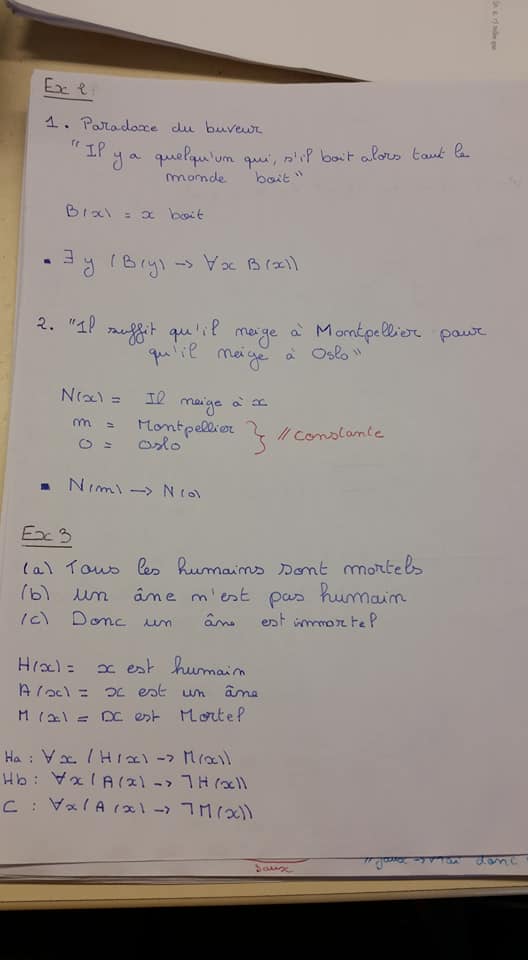 Ex 2
1. Paradoxe du buveur
"Il y a quelqu'un qui, s'il boit alors tout le
monde boit"
B(x) = x boit
▪ ∃ y (B(y) -> ∀x B(x))
2. "Il suffit qu'il neige à Montpellier pour
qu'il neige à Oslo"
N(x) = Il neige à x
m = Montpellier
o = Oslo
} // constante
▪ N(m) -> N(o)
Ex 3
(a) Tous les humains sont mortels
(b) un âne n'est pas humain
(c) Donc un âne est immortel
H(x) = x est humain
A(x) = x est un âne
M(x) = x est Mortel
Ha : ∀x (H(x) -> M(x))
Hb : ∀x (A(x) -> ¬H(x))
C : ∀x (A(x) -> ¬M(x))
donc